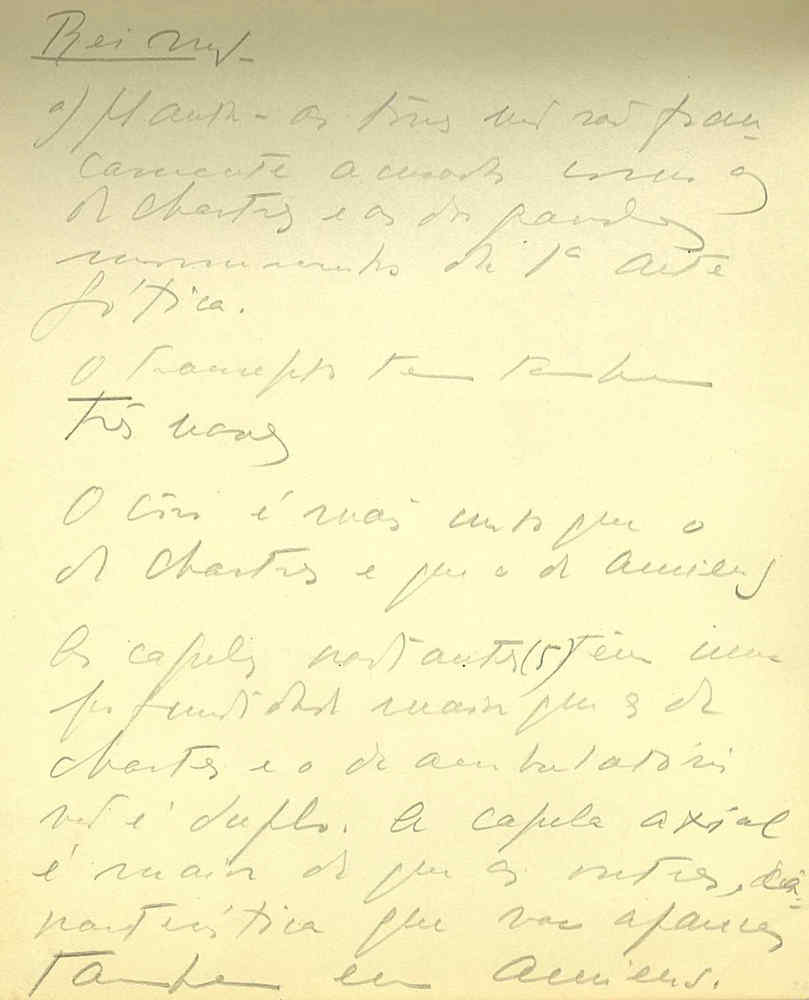 Reims
a) Planta - as três não são fran-
camente como as
de Chartres e as dos grandes
monumentos da 1ª arte
gótica.
O transepto tem também
três naves
O côro é mais curto que o
de Chartres e que o de Amiens
As capelas (5) têm uma
profundidade maior que as de
Chartres e o de ambulatório
não é duplo. A capela axial
é maior do que as outras, ca-
racterística que vai aparecer
também em Amiens.